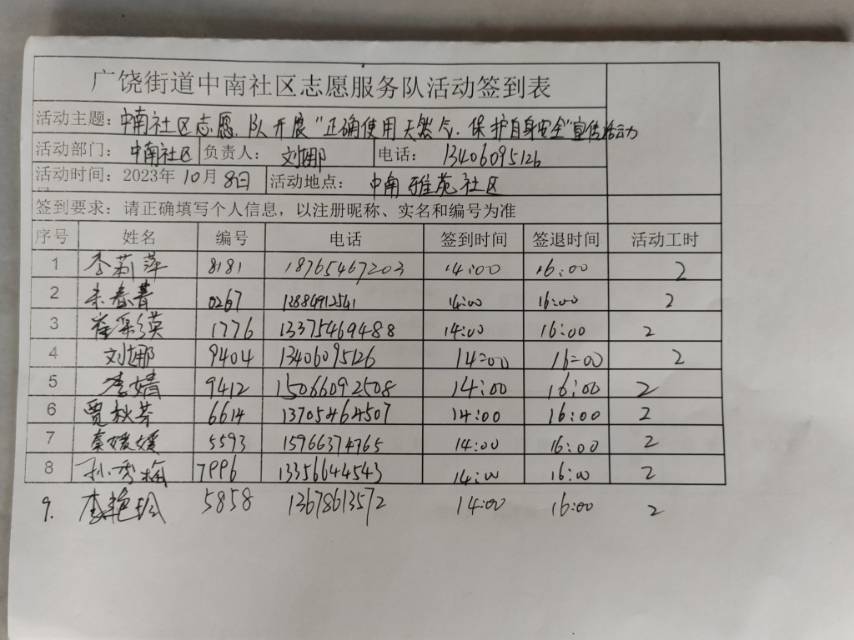 广饶街道中南社区志愿服务队活动签到表
活动主题：中南社区志愿队开展“正确使用天然气.保护自身安全”宣传活动
活动部门：中南社区 负责人：刘娜 电话：13406095126
活动时间：2023年10月8日 活动地点：中南雅苑社区
签到要求：请正确填写个人信息，以注册昵称、实名和编号为准
序号 姓名 编号 电话 签到时间 签退时间 活动工时
1 李莉萍 8181 18765467203 14:00 16:00 2
2 春菁 0267 14:00 16:00 2
3 崔采英 1776 13375469488 14:00 16:00 2
4 刘娜 9404 13406095126 14:00 16:00 2
5 李婧 9412 15066092508 14:00 16:00 2
6 贾秋芳 6614 13705464507 14:00 16:00 2
7 秦媛媛 5593 15966374765 14:00 16:00 2
8 孙秀梅 7996 13356644543 14:00 16:00 2
9. 李艳玲 5858 13678613572 14:00 16:00 2